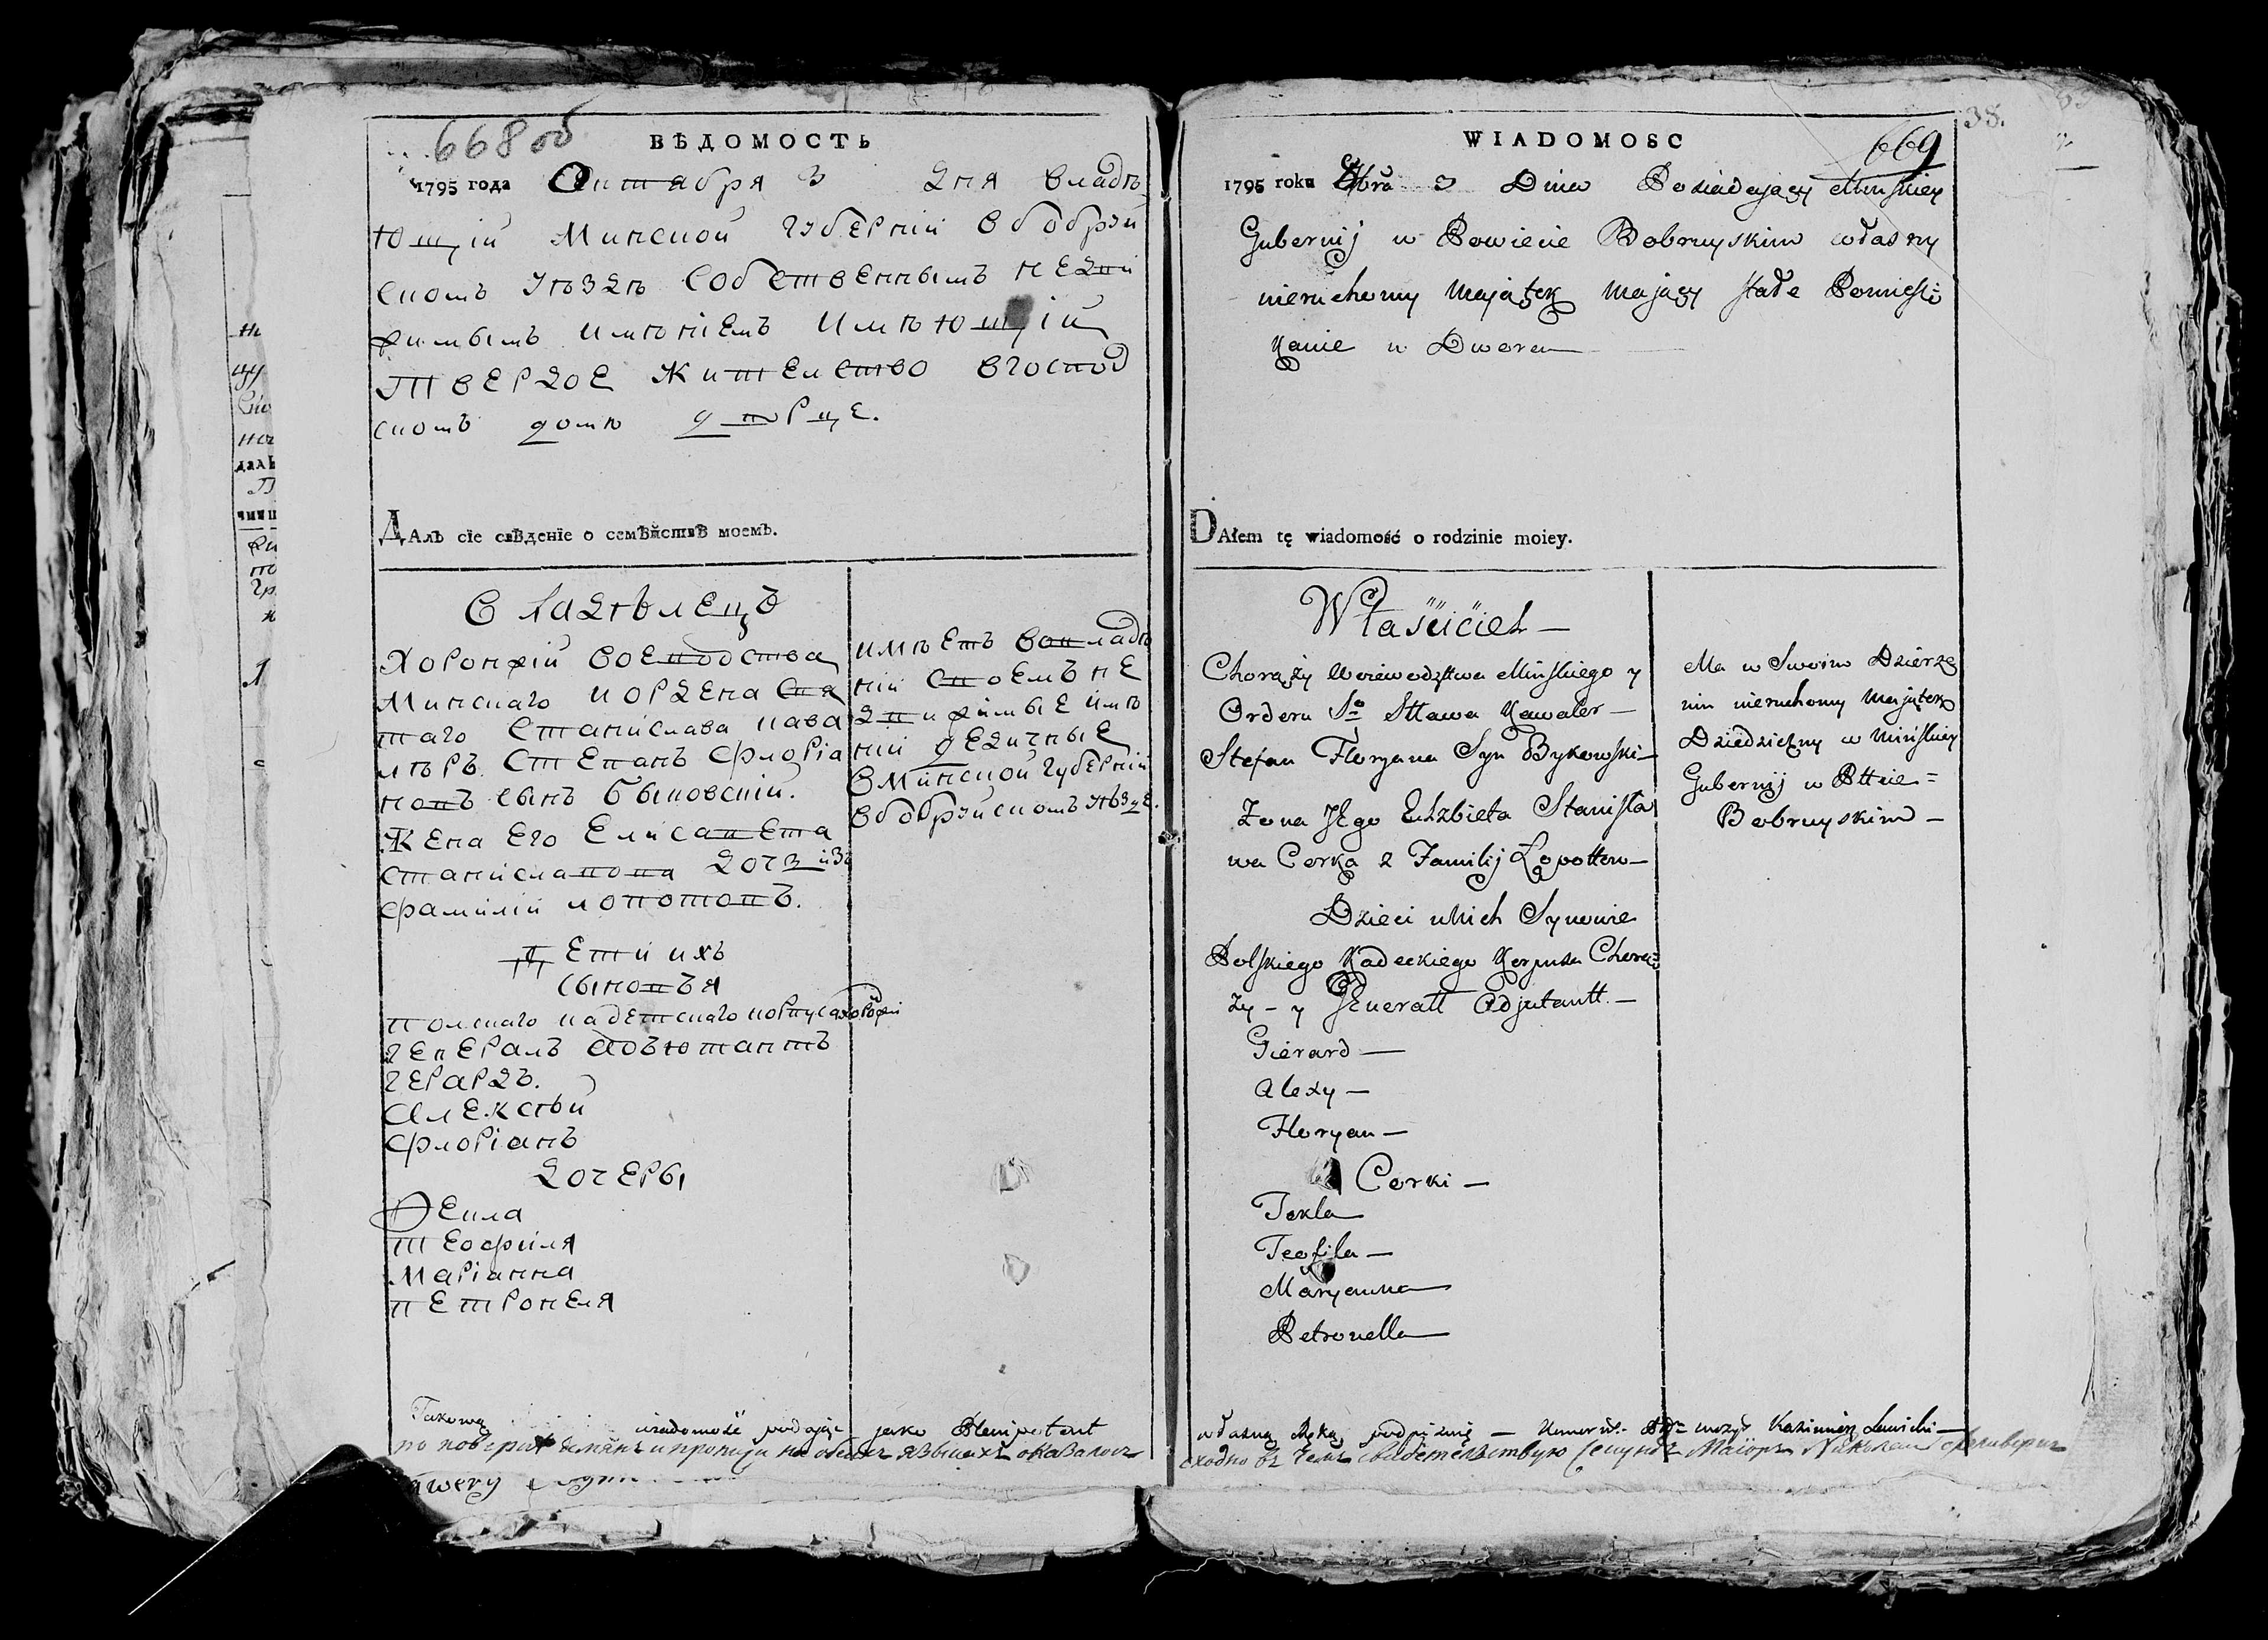 668об
ВѢДОМОСТЬ
1795 года Октября 3 дня владѣ
ющій Минской губерніи вбобруй
скомъ уѣздѣ собственнымъ недви
жимымъ имѣніемъ имѣющій
твердое жительство вгоспод
скомъ домѣ
Далъ сіе свѣденіе о семѣйствѣ моемъ.
владѣлецъ
Хоронжій воеводства
Минскаго иордена свя
таго станіслава кава
лѣръ степанъ флоріа
новъ сынъ быковскій.
Жена его елисавета
станіславова дочь изъ
фамиліи лопотовъ.
дети ихъ
сыновья
полскаго кадетскаго корпуса хоронжій
генералъ адъютантъ
герардъ.
алексѣй
флоріанъ
дочеры
Ѳекла
теофиля
маріанна
петронеля
имѣетъ вовладѣ
ніи своемъ не
движимые имѣ
ній дедичные
вМинской губерніи
вбобруйскомъ уѣзде.
Takową wiadomość podając jako Plenipotent
по поверке
на обеихъ языкахъ оказалось
38.
WIADOMOSC
669
1795 roku 8bra 3 Dnia Posiadaiący Minskiey
Gubernij w Powiecie Bobruyskim własny
nieruchomy Majątek Maiący stałe Pomiesz
kanie w Dworu
DAłem tę wiadomość o rodzinie moiey.
Właściciel —
Chorąży Woiewodztwa Minskiego y
Orderu So Sttawa Kawaler —
Stefan Floryana Syn Bykowski —
Zona JEgo Elzbieta Stanisła
wa Corka z Familij Łopottow —
Dzieci u Nich Synowie
Polskiego Kadeckiego Korpusu Chorą=
ży – y Generatt Adjutantt. —
Gierard —
Alexy —
Floryan —
Corki —
Tekla —
Teofila —
Maryanna —
Petronella —
Ma w Swoim Dzierze
niu nieruchomy Majątek
Dziedziczny w Minskiey
Gubernij w Pttcie =
Bobruyskim —
własną Ręką podpisuię — Kazimierz
сходно въ чемъ свидетельствую секундъ Маіоръ Николай